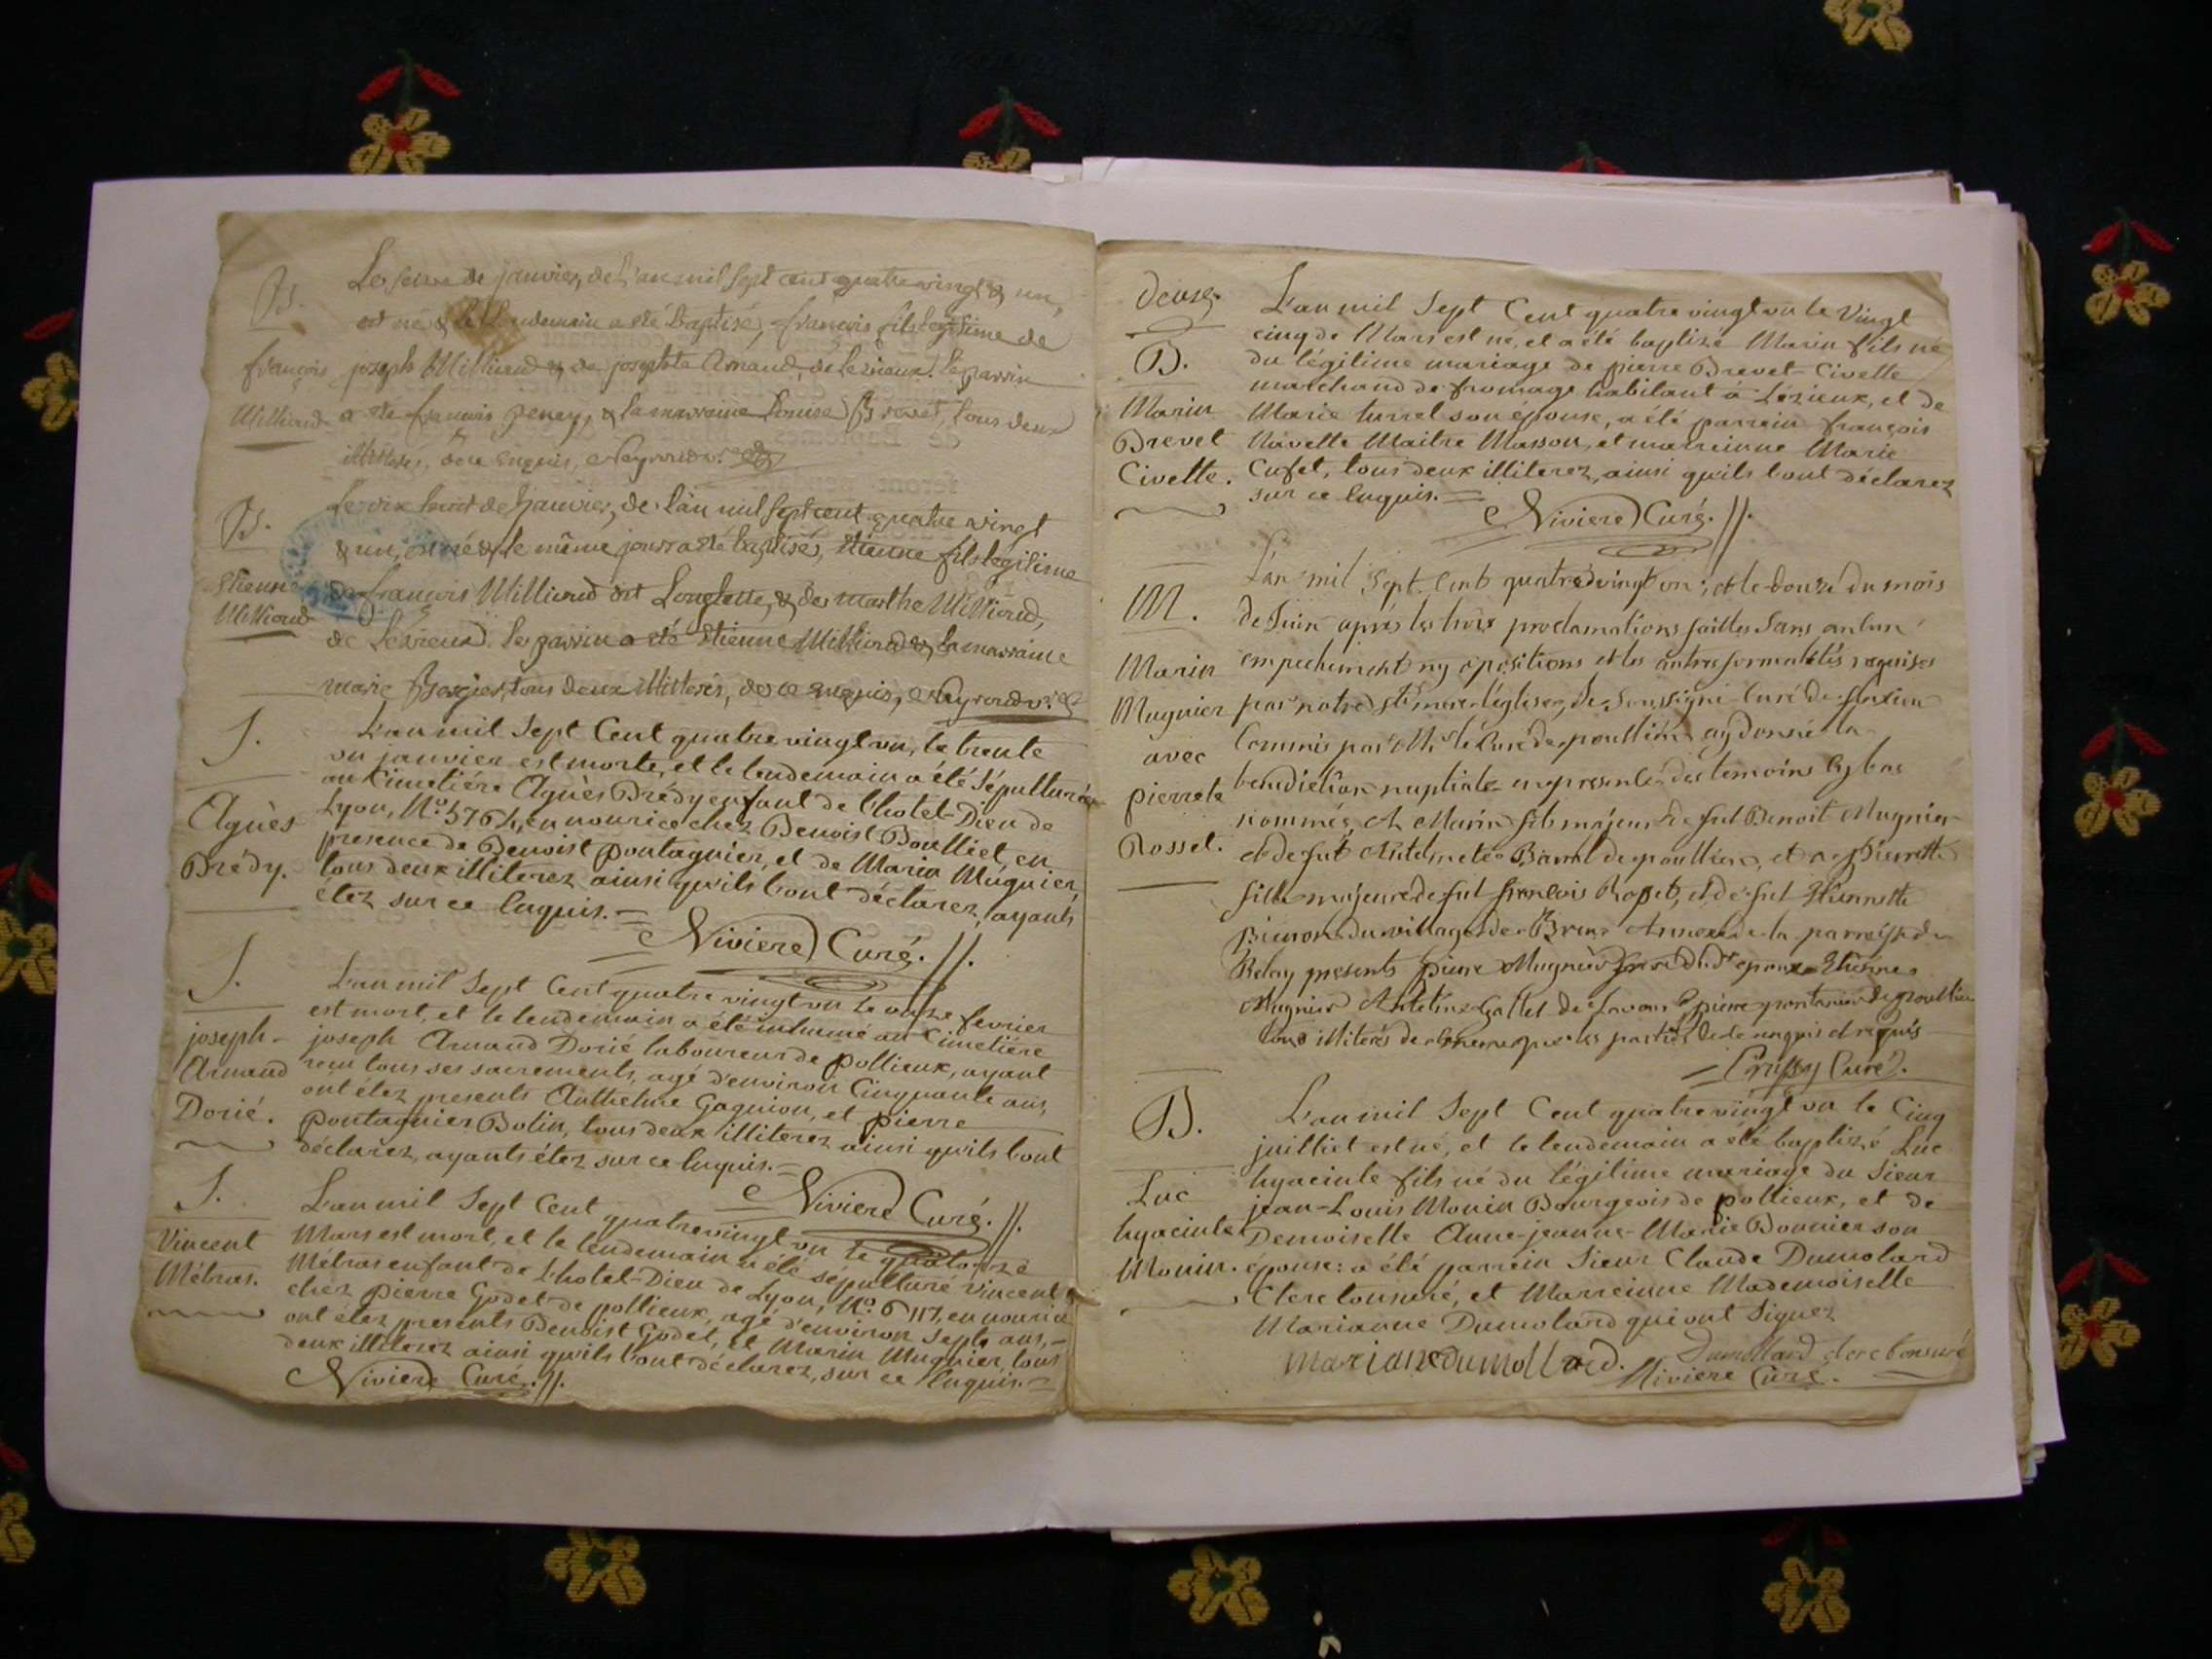 B.
Le seize de janvier, de l'an mil sept cent quatre vingt & un,
est né & le lendemain a été baptisé, françois fils légitime de
françois
Milliand
joseph Milliand & de josephte Arnaud, de Lezieux. le parrin
a été françois & la marraine Louise Brevet, tous deux
illiterés, de ce enquis, Neyroud v.re
B.
Estienne
Milliand
Le dix huit de janvier, de l'an mil sept cent quatre vingt
& un, est né & le même jour a été baptisé, étienne fils légitime
de françois Milliand dit & de marthe Milliand,
de Lézieux. le parrin a été étienne Milliand & la marraine
marie tous deux illiterés, de ce enquis, Neyroud v.re
S.
Agnès
Brédy.
L'an mil Sept Cent quatre vingt un, le trente
un janvier est morte, et le lendemain a été sépulturée
au Cimetiére Agnès Brédy enfant de l'hotel-Dieu de
Lyon, N.o 5764, en nourice chez Benoist Boulliet, en
presence de Benoist pontagnier, et de Marin Mugnier,
tous deux illiterez ainsi qu'ils l'ont déclarez, ayants
étez sur ce Enquis. =
Niviere Curé. //.
S.
joseph -
Arnaud
Dorié.
L'an mil Sept Cent quatre vingt un le onze fevrier
est mort, et le lendemain a été inhumé au Cimetiére
joseph Arnaud Dorié laboureur de pollieux, ayant
reçu tous ses sacrements, agé d'environ Cinquante ans,
ont étez presents Anthelme Gagnion, et pierre
pontagnier Bolin, tous deux illiterez ainsi qu'ils l'ont
déclarez, ayants étez sur ce Enquis. =
Niviere Curé. //.
S.
Vincent
Métras.
L'an mil Sept Cent quatre vingt un le quatorze
Mars est mort, et le lendemain a été sépulturé Vincent
Métras enfant de l'hotel-Dieu de Lyon, N.o 6117, en nourice
chez pierre Godet de pollieux, agé d'environ Septs ans, -
ont étez presents Benoist Godet, et Marin Mugnier, tous
deux illiterez ainsi qu'ils l'ont déclarez, sur ce Enquis. =
Niviere Curé. //.
deux.
B.
Marin
Brevet
Civette.
L'an mil Sept Cent quatre vingt un le Vingt
cinq de Mars est né, et a été baptizé Marin fils né
du légitime mariage de pierre Brevet-Civette
marchand de fromage habitant à Lézieux, et de
Marie turrel son épouse, a été parrein françois
Navette Maitre Masson, et marreinne Marie
Cufet, tous deux illiterez, ainsi qu'ils l'ont déclarez
sur ce Enquis. =
Niviere Curé. //.
M.
Marin
Mugnier
avec
pierrete
Rosset.
L'an mil Sept Cent quatre vingt un; et le douze du mois
de Juin après les trois proclamations faittes Sans aucun
empechement ny opositions et les autres formalités requises
par notre ste mere l'église, Je Soussigné Curé de
Commis par Mr le Curé de poullieu ay donné la
benediction nuptiale en presence des temoins cy bas
nommés, A Marin fils majeur de fut Benoit Mugnier
et de fut de poullieu, et a Pierrette
fille majeure de fut françois Roset, et de fut
du village de Brens Annexe de la parroisse de
Belay presents pierre Mugnier époux Etienne
Mugnier Antelme Gallet de & pierre pontanier de poullieu
tous illiterés de même que les parties de ce enquis et requis
Curé.
B.
Luc
hyacinte
Monin.
L'an mil Sept Cent quatre vingt un le Cinq
juilliet est né, et le lendemain a été baptizé Luc
hyacinte fils né du légitime mariage du Sieur
jean-Louis Monin Bourgeois de pollieux, et de
Demoiselle Anne-jeanne-Marie Bonnier son
épouse: a été parrein Sieur Claude Dumolard
Clerc tonsuré, et Marreinne Mademoiselle
Marianne Dumolard qui ont Signez
marianedumollard. Dumollard clerc tonsuré
Niviere Curé.